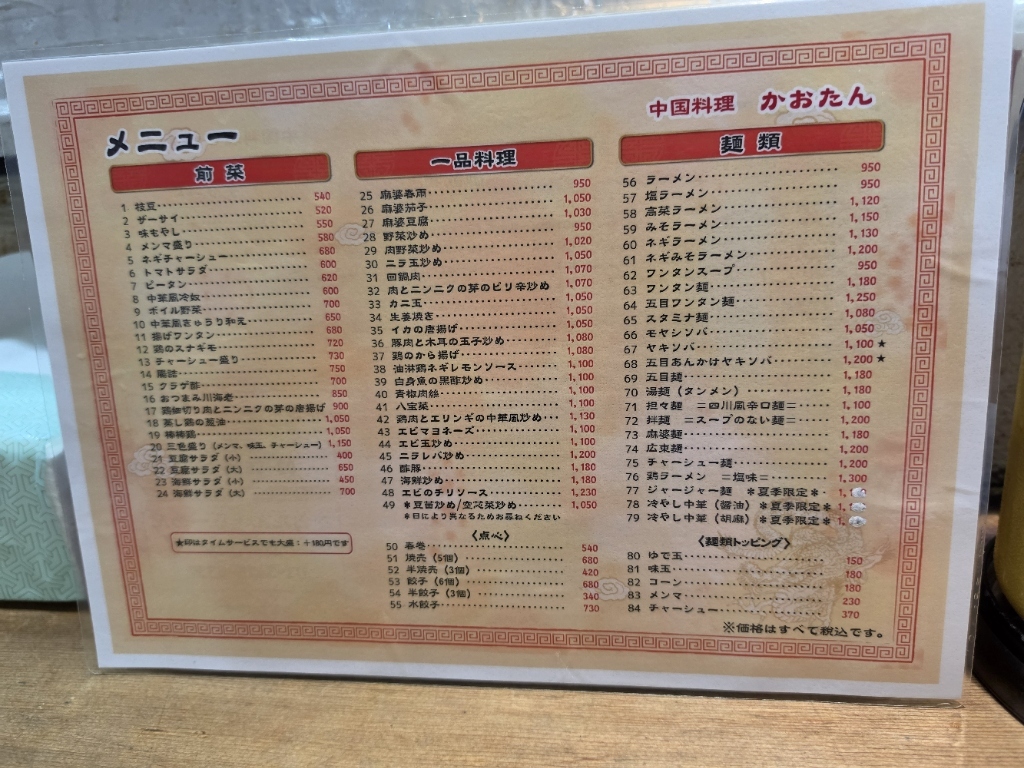 中国料理 かおたん
メニュー
前菜
1 枝豆 540
2 ザーサイ 520
3 味もやし 550
4 メンマ盛り 580
5 ネギチャーシュー 680
6 トマトサラダ 600
7 ピータン 620
8 中華風冷奴 600
9 ボイル野菜 700
10 中華風きゅうり和え 650
11 揚げワンタン 680
12 鶏のスナギモ 720
13 チャーシュー盛り 730
14 腸詰 750
15 クラゲ酢 700
16 おつまみ川海老 850
17 鶏細切り肉とニンニクの芽の唐揚げ 900
18 蒸し鶏の葱油 1,050
19 棒棒鶏 1,050
20 三毛盛り (メンマ、味玉、チャーシュー) 1,150
21 豆腐サラダ (小) 400
22 豆腐サラダ (大) 650
23 海鮮サラダ (小) 450
24 海鮮サラダ (大) 700
★印はタイムサービスでも大盛：＋180円です
一品料理
25 麻婆春雨 950
26 麻婆茄子 1,050
27 麻婆豆腐 1,030
28 野菜炒め 950
29 肉野菜炒め 1,020
30 ニラ玉炒め 1,050
31 回鍋肉 1,070
32 肉とニンニクの芽のピリ辛炒め 1,070
33 カニ玉 1,050
34 生姜焼き 1,050
35 イカの唐揚げ 1,050
36 豚肉と木耳の玉子炒め 1,080
37 鶏のから揚げ 1,080
38 油淋鶏ネギレモンソース 1,100
39 白身魚の黒酢炒め 1,100
40 青椒肉絲 1,100
41 八宝菜 1,100
42 鶏肉とエリンギの中華風炒め 1,130
43 エビマヨネーズ 1,100
44 エビ玉炒め 1,100
45 ニラレバ炒め 1,200
46 酢豚 1,180
47 海鮮炒め 1,180
48 エビのチリソース 1,230
49 ＊豆苗炒め/空芯菜炒め 1,050
＊日により異なるためお尋ねください
〈点心〉
50 春巻 540
51 焼売 (5個) 680
52 半焼売 (3個) 420
53 餃子 (6個) 680
54 半餃子 (3個) 340
55 水餃子 730
麺類
56 ラーメン 950
57 塩ラーメン 950
58 高菜ラーメン 1,120
59 みそラーメン 1,150
60 ネギラーメン 1,130
61 ネギみそラーメン 1,200
62 ワンタンスープ 950
63 ワンタン麺 1,180
64 五目ワンタン麺 1,250
65 スタミナ麺 1,080
66 モヤシソバ 1,050
67 ヤキソバ 1,100 ★
68 五目あんかけヤキソバ 1,200 ★
69 五目麺 1,180
70 湯麺 (タンメン) 1,180
71 担々麺 ＝四川風辛口麺＝ 1,100
72 拌麺 ＝スープのない麺＝ 1,200
73 麻婆麺 1,180
74 広東麺 1,200
75 チャーシュー麺 1,200
76 鶏ラーメン ＝塩味＝ 1,300
77 ジャージャー麺 ＊夏季限定＊
78 冷やし中華 (醤油) ＊夏季限定＊
79 冷やし中華 (胡麻) ＊夏季限定＊
〈麺類トッピング〉
80 ゆで玉 150
81 味玉 180
82 コーン 180
83 メンマ 230
84 チャーシュー 370
※価格はすべて税込です。